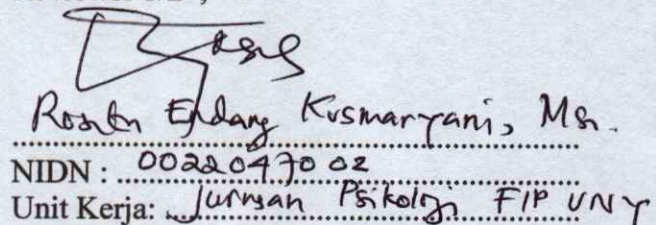 Rosita Endang Kusmaryani, Msi.
NIDN : 0022047002
Unit Kerja: Jurusan Psikologi FIP UNY